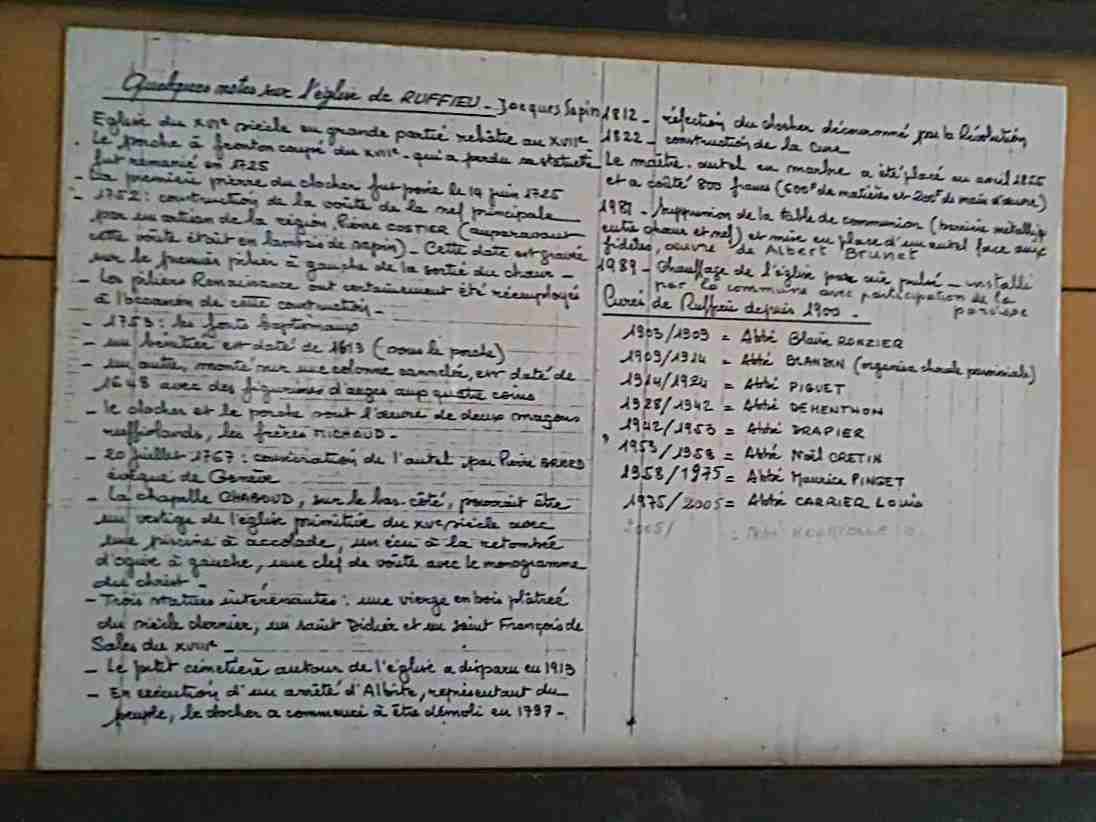 Quelques notes sur l'église de RUFFIEU - Jacques Sapin
Eglise du XVIe siècle en grande partie rebâtie au XVIIe -
. Le porche à fronton coupé du XVIIe - qui a perdu sa statuette
fut remanié en 1725
- La première pierre du clocher fut posée le 19 juin 1725
- 1752 : construction de la voûte de la nef principale
par un artisan de la région, Pierre COSTIER (auparavant
cette voûte était en lambris de sapin) - Cette date est gravée
sur le premier pilier à gauche de la sortie du chœur -
- Les piliers Renaissance ont certainement été réemployés
à l'occasion de cette construction -
- 1753 : les fonts baptismaux
- un bénitier est daté de 1613 (sous le porche)
- un autre, monté sur une colonne cannelée, est daté de
1648 avec des figurines d'anges aux quatre coins
- le clocher et le porche sont l'œuvre de deux maçons
ruffiolands, les frères MICHAUD -
- 20 juillet 1767 : consécration de l'autel par Pierre
évêque de Genève
- La chapelle CHABOUD, sur le bas-côté, pourrait être
un vestige de l'église primitive du XVe siècle avec
une piscine à accolade, un écu à la retombée
d'ogive à gauche, une clef de voûte avec le monogramme
du christ -
- Trois statues intéressantes : une vierge en bois plâtrée
du siècle dernier, un saint Didier et un saint François de
Sales du XVIIIe -
- Le petit cimetière autour de l'église a disparu en 1913
- En exécution d'un arrêté d'Albitte, représentant du
peuple, le clocher a commencé à être démoli en 1797 -
1812 - réfection du clocher découronné par la Révolution
1822 - construction de la Cure
Le maître-autel en marbre a été placé en avril 1855
et a coûté 800 francs (600f de matières et 200f de main d'œuvre)
1981 - Suppression de la table de communion (barrière métalliq
entre chœur et nef) et mise en place d'un autel face aux
fidèles, œuvre de Albert Brunet
1989 - Chauffage de l'église par air pulsé - installé
par la commune avec participation de la
paroisse
Curés de Ruffieu depuis 1900 -
1903/1909 = Abbé Blaise RONZIER
1909/1914 = Abbé BLANDIN (organise chorale paroissiale)
1914/1924 = Abbé PIGUET
1928/1942 = Abbé DEMENTHON
1942/1953 = Abbé DRAPIER
1953/1958 = Abbé Noël CRETIN
1958/1975 = Abbé Maurice PINGET
1975/2005 = Abbé CARRIER Louis
2005/ = Abbé